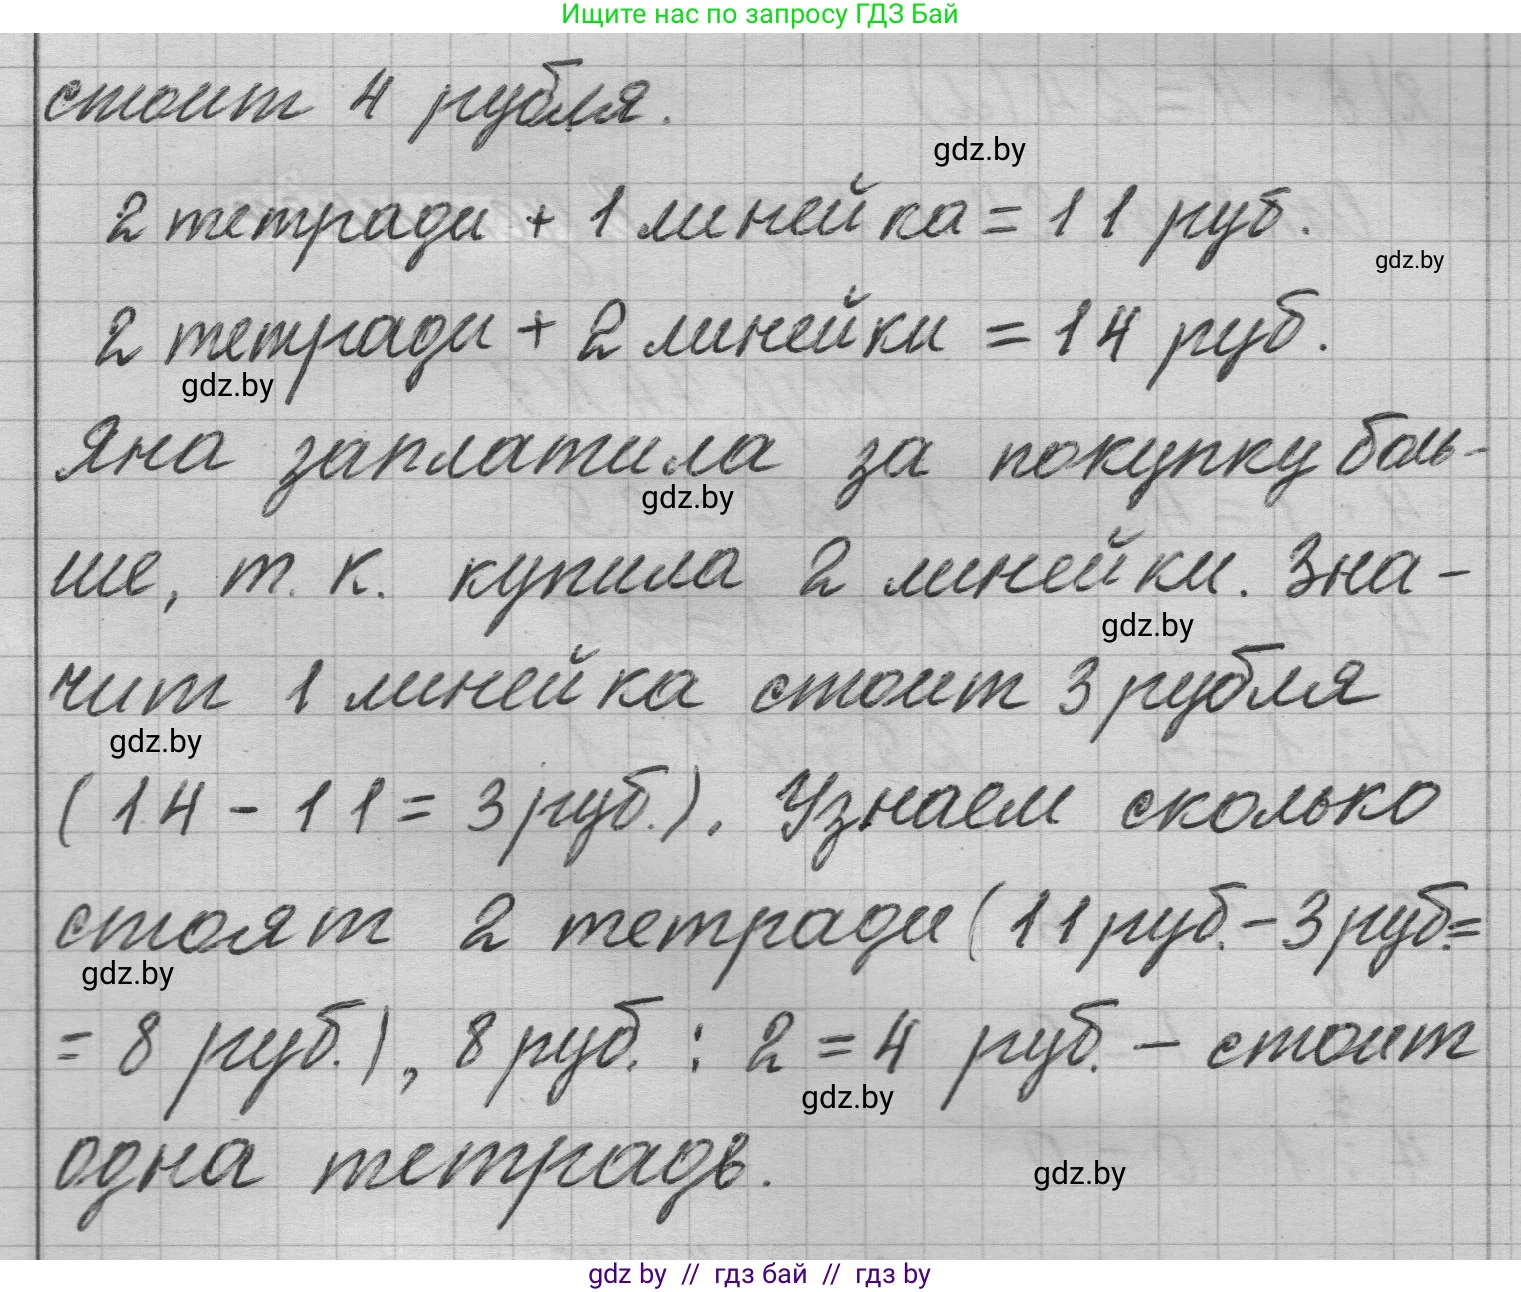 Ищите нас по запросу ГДЗ Бай
стоит 4 рубля.
gdz.by
2 тетради + 1 линейка = 11 руб.
gdz.by
2 тетради + 2 линейки = 14 руб.
gdz.by
Яна заплатила за покупку боль-
gdz.by
ше, т. к. купила 2 линейки. Зна-
gdz.by
чит 1 линейка стоит 3 рубля
gdz.by
(14 - 11 = 3 руб.). Узнаем сколько
стоят 2 тетради (11 руб. - 3 руб.=
gdz.by
= 8 руб.), 8 руб. : 2 = 4 руб. - стоит
gdz.by
одна тетрадь.
gdz.by
gdz by // гдз бай // гдз by